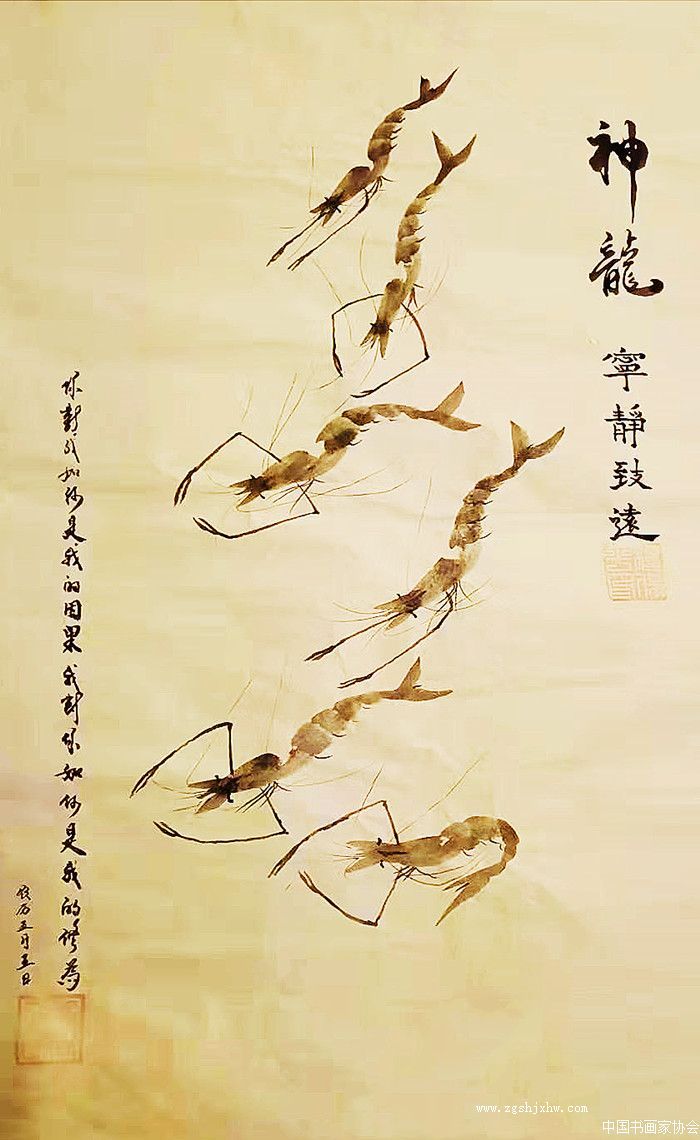 神龍
寧靜致遠
你對我如何是我的因果我對你如何是我的修為
农历五月五日
www.zgshjxhw.com
中国书画家协会